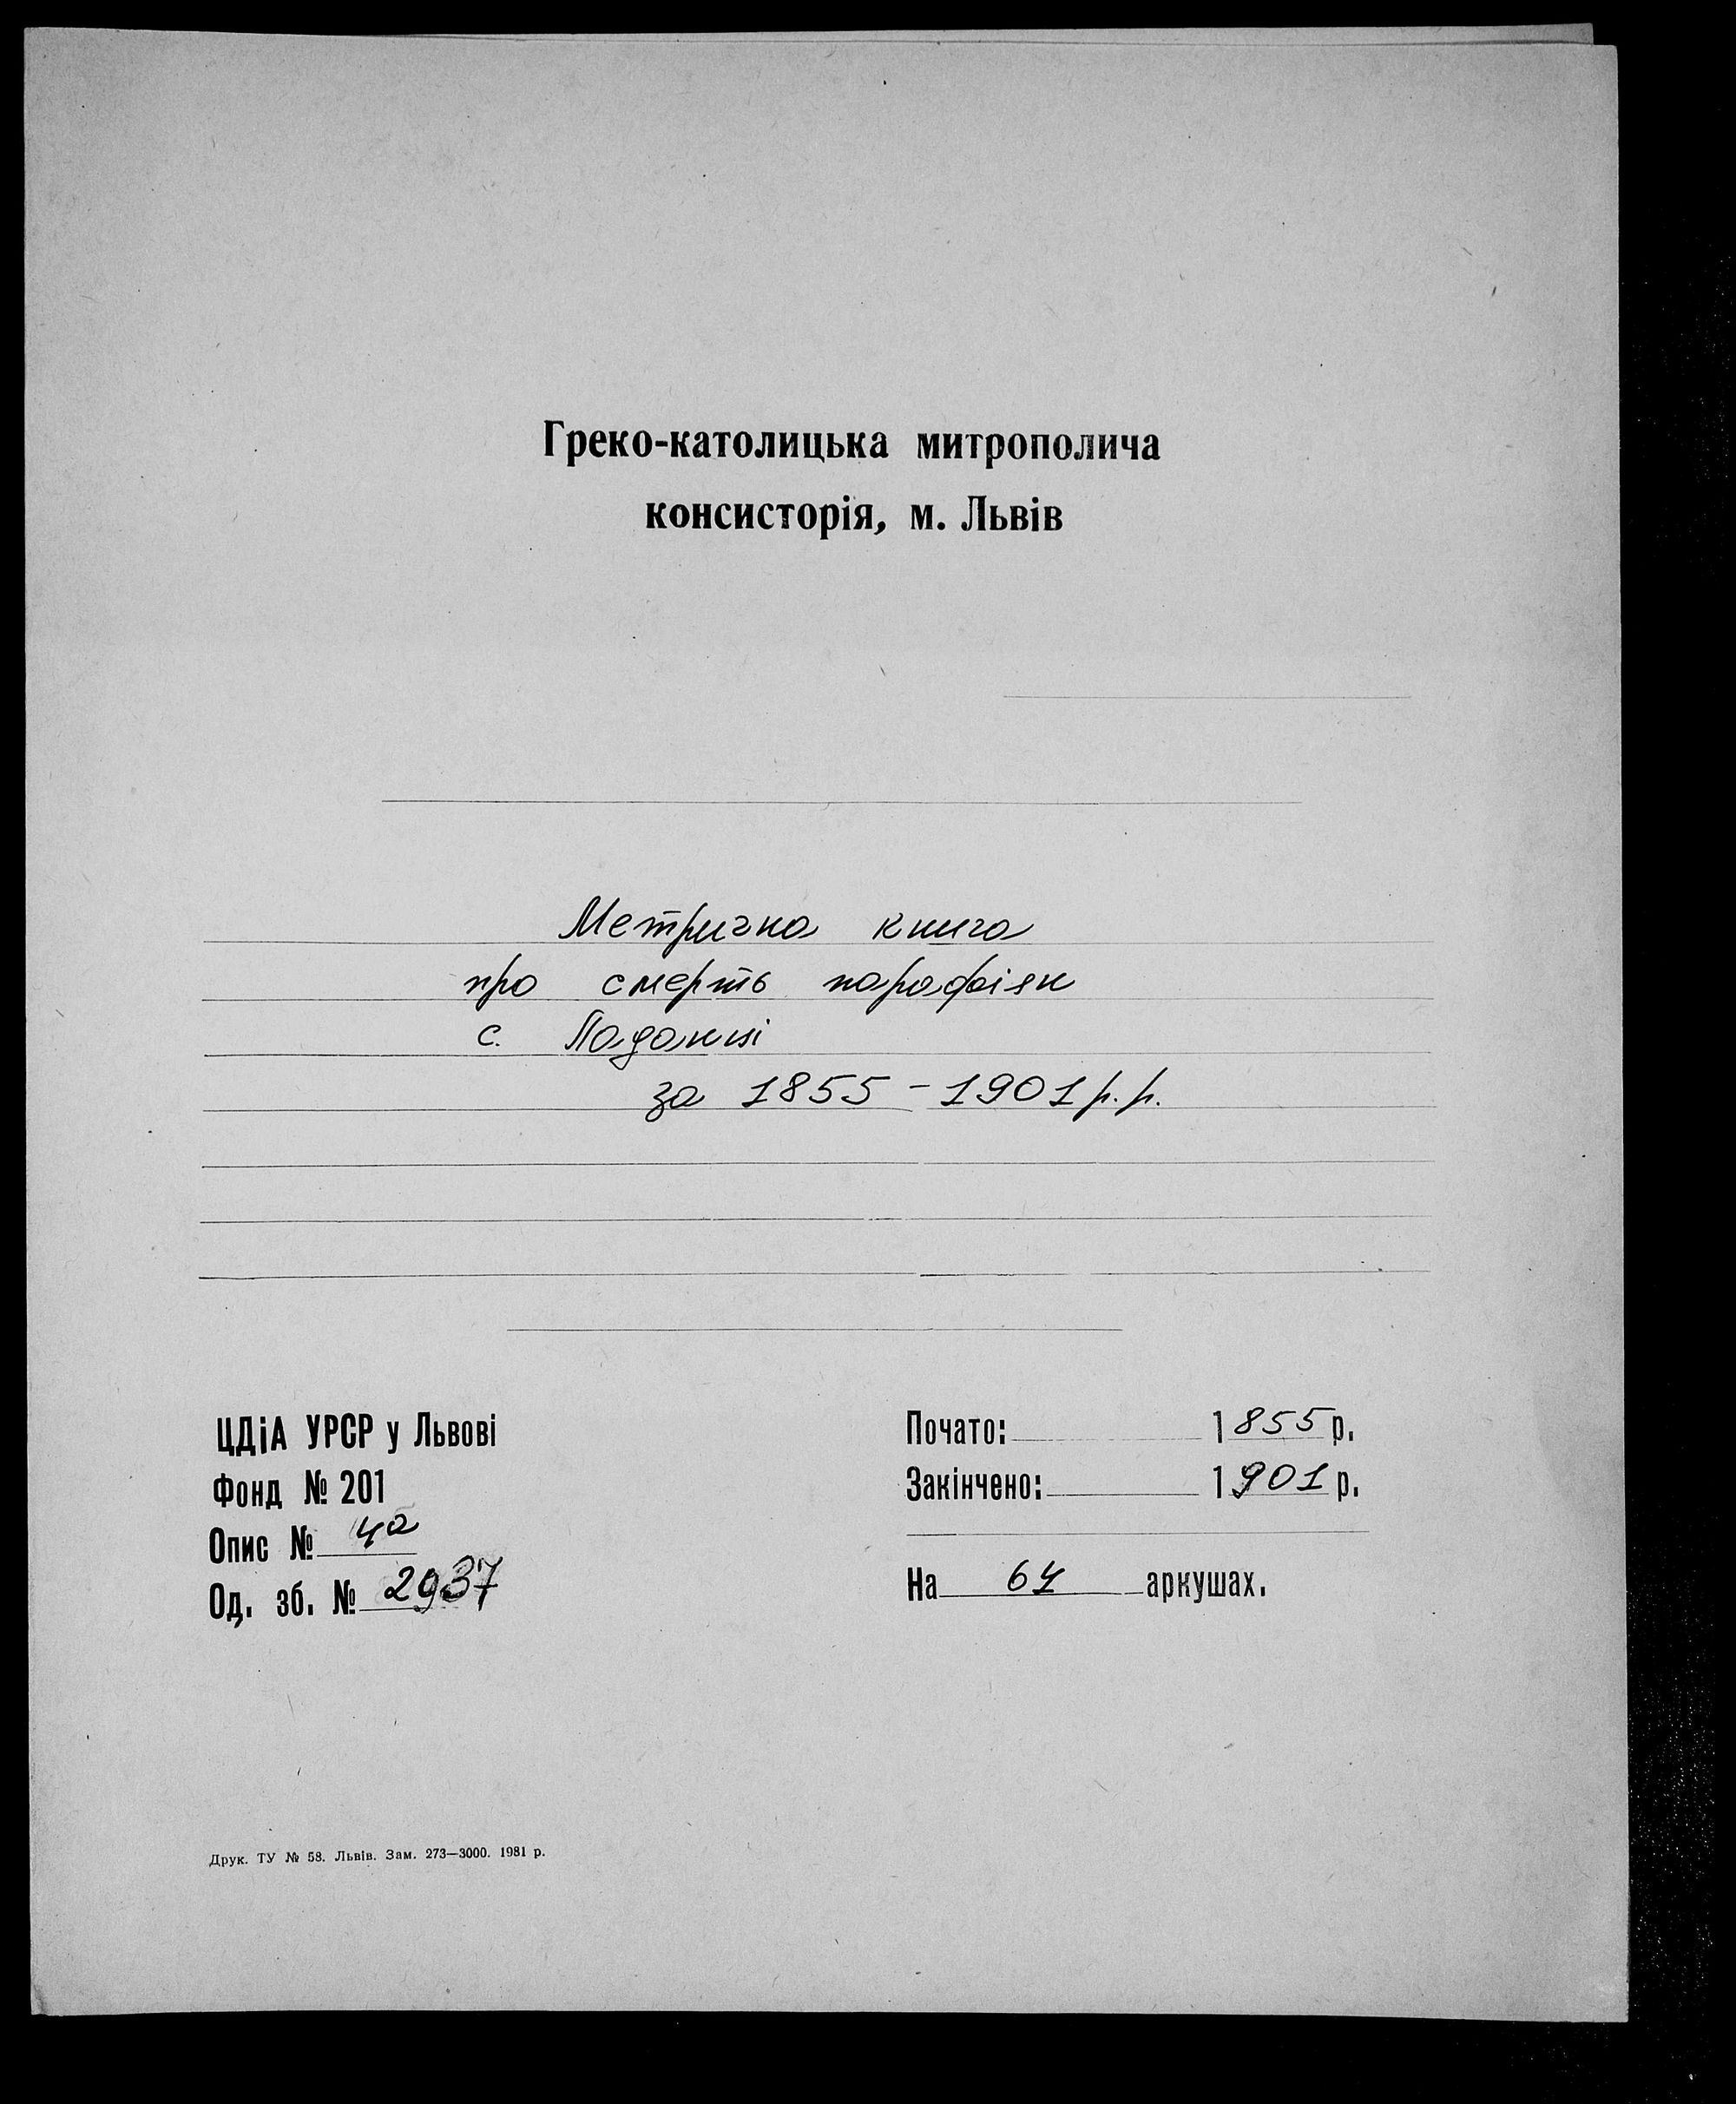 Греко-католицька митрополича
консисторія, м. Львів
Метрична книга
про смерть парафіян
с. Ладанці
за 1855-1901 р.р.
ЦДіА УРСР у Львові
Фонд № 201
Опис № 4а
Од. зб. № 2937
Почато: 1855 р.
Закінчено: 1901 р.
На 64 аркушах.
Друк. ТУ № 58. Львів. Зам. 273—3000. 1981 р.